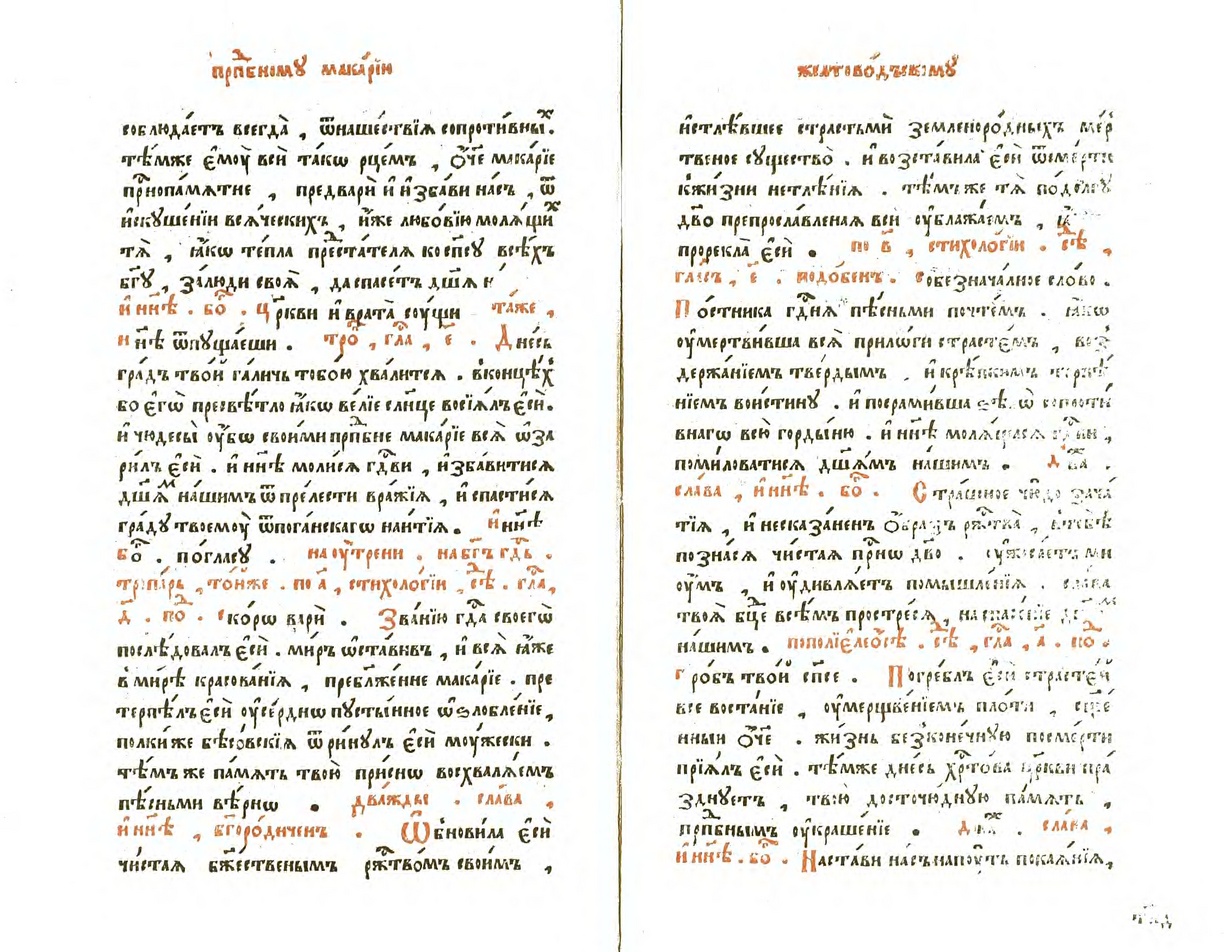 прпⷣбномꙋ макарїю
соблюдаетъ всегда , ѿнашествїѧ сопротивныⷯ.
тѣмже ємоу вси такѡ рцемъ , ѻч҃е макарїе
прⷭнопамѧтне , предвари и избави насъ , ѿ
искꙋшенїи всѧческихъ , иже любовїю молѧщиⷯ
тѧ , ꙗкѡ тепла предⷭтателѧ коспⷭꙋ всѣхъ
бг҃ꙋ , залюди своѧ , даспасетъ дш҃ѧ н
и нн҃ѣ . боⷢ . Црⷦ҇ви и врата соущи таже ,
и нн҃ѣ ѿпꙋщаеши . троⷫ , глⷭа , є҃ . Днесь
градъ твои галичь тобою хвалитсѧ . вконцѣⷯ
бо єгѡ пресвѣтло ꙗкѡ велїе слн҃це восїѧлъ єси .
и чюдесы оубѡ своими прпⷣбне макарїе всѧ ѡза
рилъ єси . и нн҃ѣ молисѧ гдⷭви , избавитисѧ
дш҃ѧⷨ нашимъ ѿпрелести вражїѧ , и спастисѧ
градꙋ твоемоу ѿпоганскагѡ наитїѧ . и нн҃ѣ
боⷢ . погласꙋ . на оутрени . на бг҃ъ гдⷭь .
тропарь , тоиже . по а҃ , стихологїи , сѣⷣ . глⷭа ,
д҃ . поⷣ . скорѡ вари . Званїю гдⷭа своегѡ
послѣдовалъ єси . миръ ѡставивъ , и всѧ ꙗже
в мирѣ красованїѧ , преблⷤение макарїе . пре
терпѣлъ єси оусерднѡ пꙋстынное ѡѕлобленїе ,
полкиже бѣсовскїѧ ѿринꙋлъ єси моужески .
тѣмъже память твою приснѡ восхвалѧемъ
пѣсньми вѣрнѡ . дважды . слава ,
и нн҃ѣ , бг҃ородиченъ . Ѡбновила єси
чистаѧ бжⷭественымъ ржⷭтвомъ своимъ ,
желтоводъскомꙋ
истлѣвшее страстьми земленородныхъ мер
твеное сꙋщество . и возставила єси ѿсмерти
кжизни нетлѣнїѧ . тѣмъже тѧ подолгꙋ
дв҃о препрославленаѧ вси оублажаемъ ,
прорекла єси . по в҃ , стихологїи . сѣⷣ ,
глⷭасъ , є҃ . подобенъ . собезначалное слово .
Постника гдⷭнѧ пѣсньми почтемъ . ꙗкѡ
оумертвивша всѧ прилоги страстемъ , воз
держанїемъ твердымъ , и крѣпкимъ терпѣ
нїемъ воистинꙋ . и посрамивша ѕѣлѡ сопроти
внагѡ всю гордыню . и нн҃ѣ молѧщасѧ гдⷭви ,
помиловатисѧ дш҃ѧмъ нашимъ . два .
слава , и нн҃ѣ . боⷢ . Страшное чюдо зача
тїѧ , и несказаненъ ѻбразъ ржⷭтва , втебѣ
познасѧ чистаѧ прⷭнѡ дв҃о . оужасаетъ ми
оумъ , и оудивлѧетъ помышленїѧ . слава
твоѧ бц҃е всѣмъ простресѧ , на спасенїе дш҃амъ
нашимъ . пополїєлеосѣ . сѣⷣ , глⷭа , а҃ . поⷣ .
гробъ твои сп҃се . Погреблъ єси страстеи
все востанїе , оумерщвенїемъ плоти , сщ҃е
нныи ѻч҃е . жизнь безконечнꙋю посмерти
прїѧлъ єси . тѣмже днесь хрⷭтова црⷦ҇ви пра
зднꙋетъ , твою досточюднꙋю память ,
прпⷣбнымъ оукрашенїе . двⷤа . слава ,
и нн҃ѣ . боⷢ . Настави насъ напоуть покаѧнїѧ ,